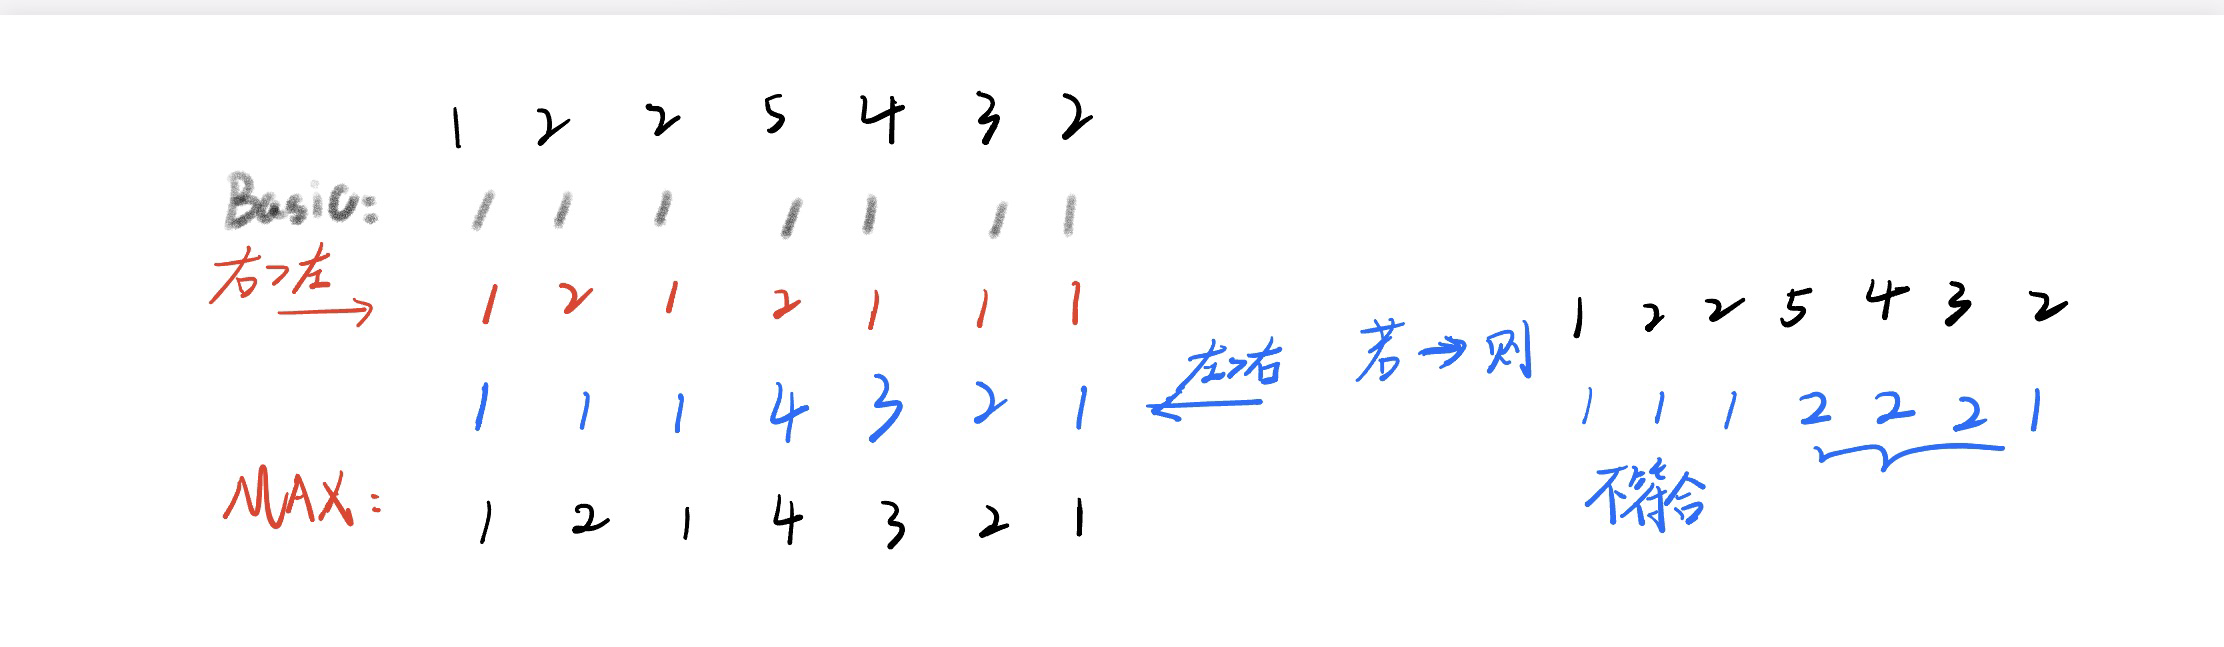 1 2 2 5 4 3 2
Basic: 1 1 1 1 1 1 1
右>左
→ 1 2 1 2 1 1 1
1 1 1 4 3 2 1 ← 左>右
MAX: 1 2 1 4 3 2 1
若→则 1 2 2 5 4 3 2
1 1 1 2 2 2 1
不符合